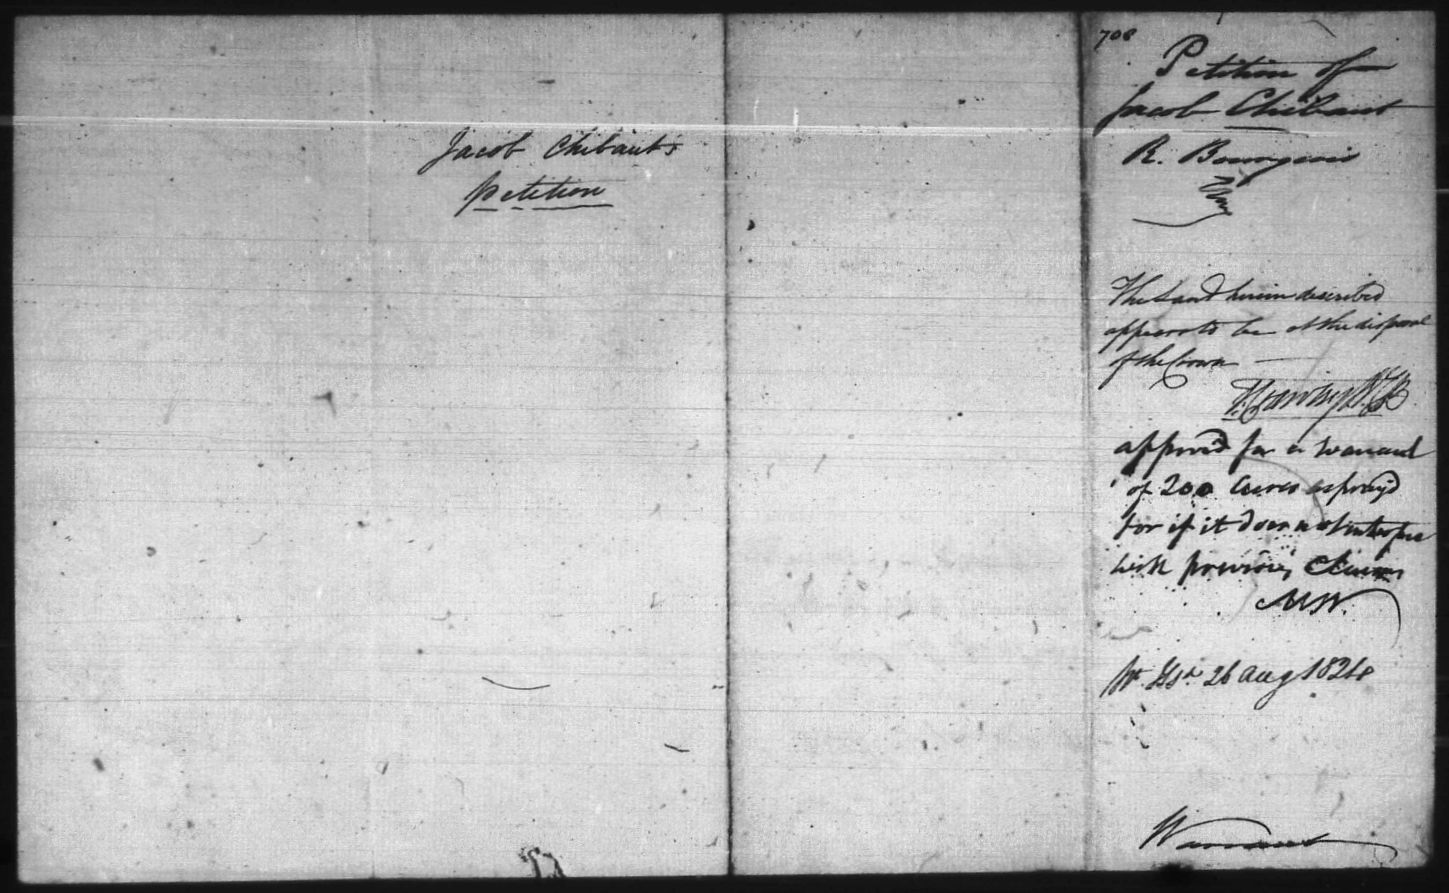 Jacob Chibaut's
petition
708
Petition of
Jacob Chibaut
R. Bourgeois
The Land herein described
appears to be at the disposal
of the Crown
approv'd for a warrant
of 200 Acres as pray'd
for if it does not interfere
with previous Claims
26 Aug 1824
Warrant